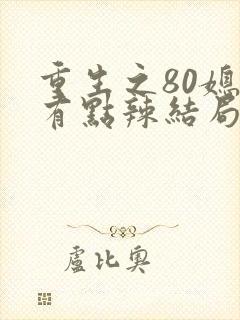 重生之80媳
有點辣結局
盧比奧